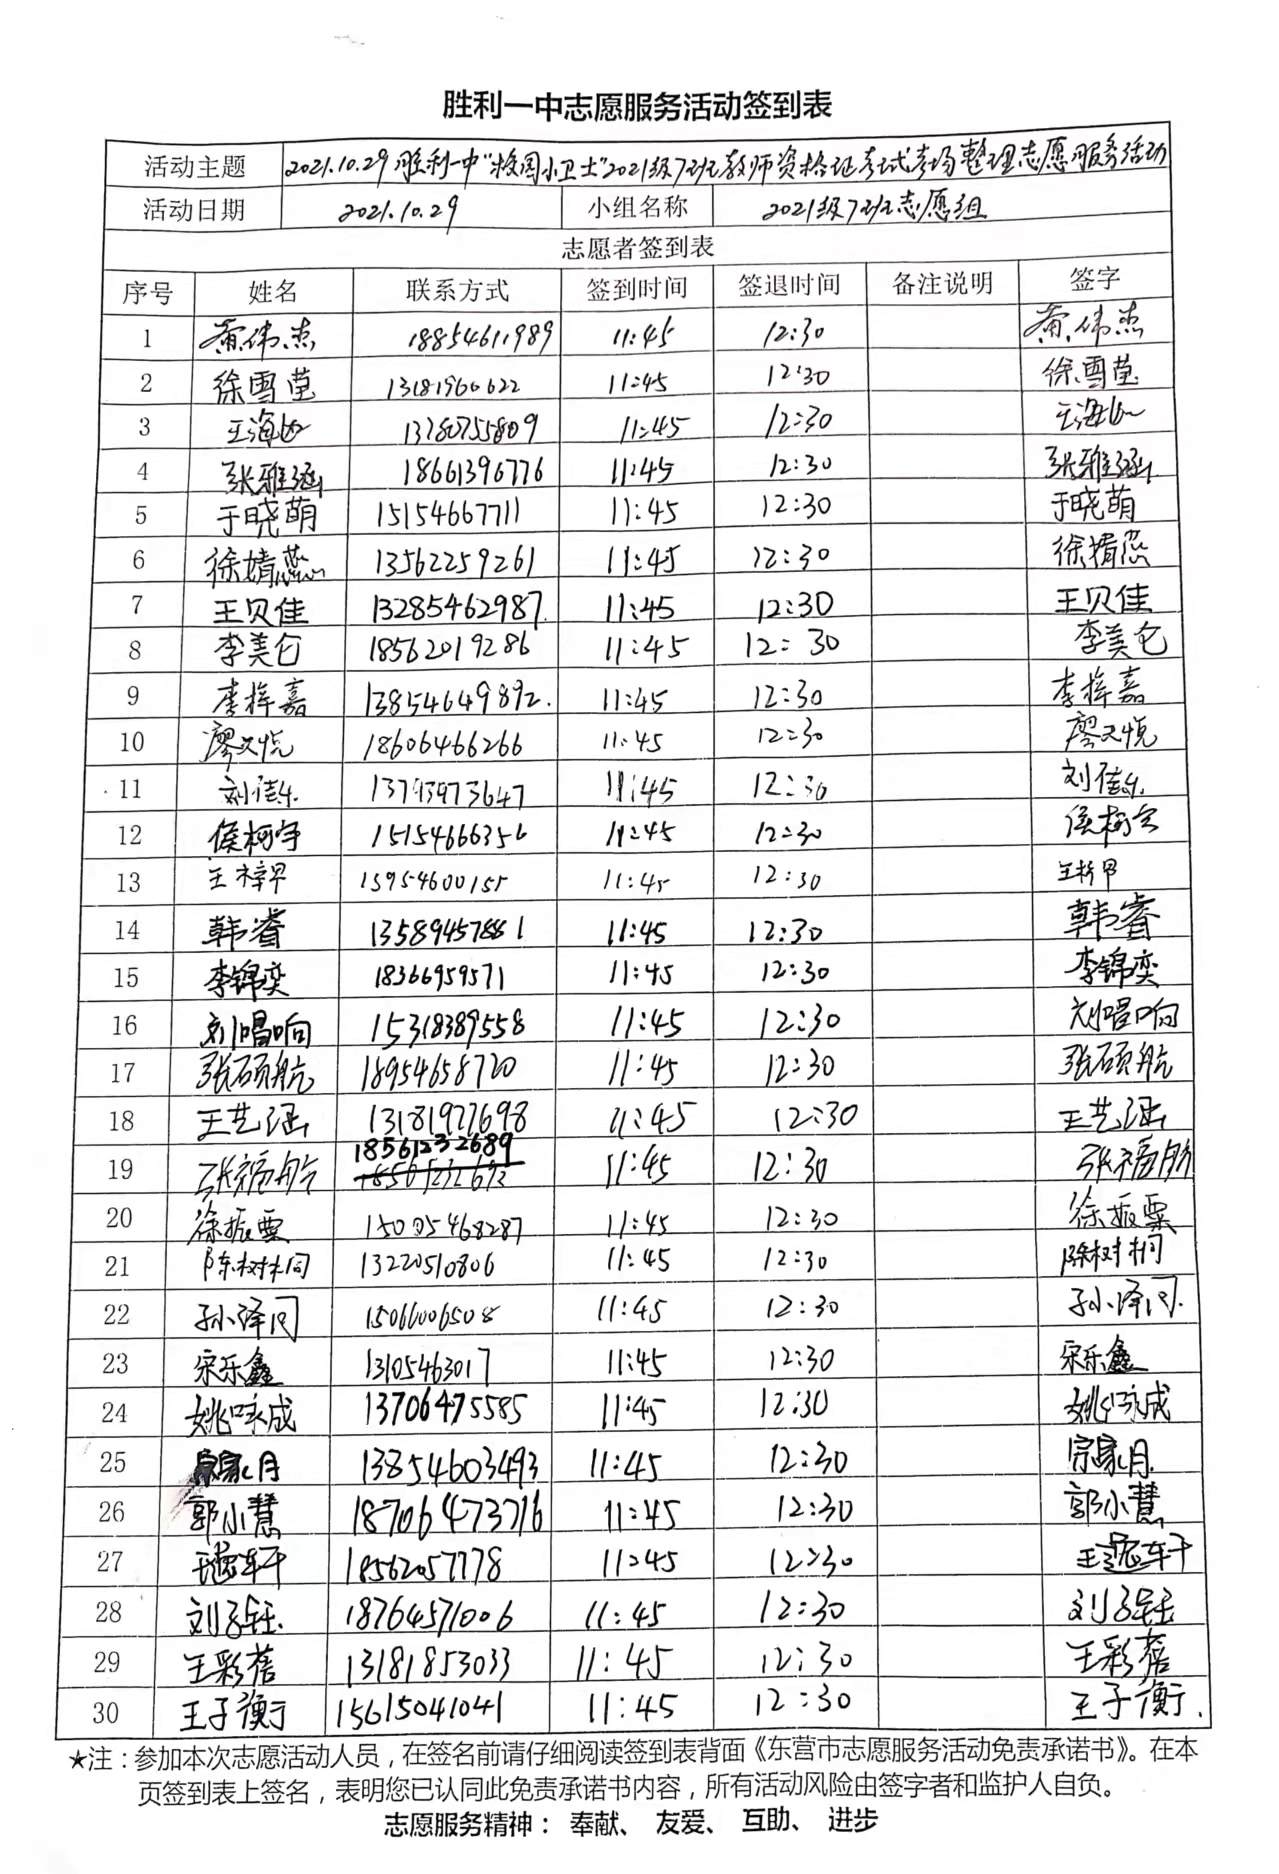 胜利一中志愿服务活动签到表
活动主题 2021.10.29胜利一中“校园小卫士”2021级7班教师资格证考试考场整理志愿服务活动
活动日期 2021.10.29 小组名称 2021级7班志愿组
志愿者签到表
序号 姓名 联系方式 签到时间 签退时间 备注说明 签字
1 黄伟杰 18854611989 11:45 12:30 黄伟杰
2 徐雪莹 13181960622 11:45 12:30 徐雪莹
3 王海 13780755809 11:45 12:30 王海
4 张雅涵 18661396776 11:45 12:30 张雅涵
5 于晓萌 15154667711 11:45 12:30 于晓萌
6 徐婧蕊 13562259261 11:45 12:30 徐婧蕊
7 王贝佳 13285462987 11:45 12:30 王贝佳
8 李美仑 18562019286 11:45 12:30 李美仑
9 李梓嘉 13854649892. 11:45 12:30 李梓嘉
10 廖文悦 18606466266 11:45 12:30 廖文悦
11 刘佳乐 13793973647 11:45 12:30 刘佳乐
12 侯柯宇 15154666356 11:45 12:30 侯柯宇
13 王梓甲 15954600155 11:45 12:30 王梓甲
14 韩睿 13589457881 11:45 12:30 韩睿
15 李锦奕 18366959571 11:45 12:30 李锦奕
16 刘唱响 15318389558 11:45 12:30 刘唱响
17 张硕航 18954658720 11:45 12:30 张硕航
18 王艺涵 13181977698 11:45 12:30 王艺涵
19 张福航 18561232689 11:45 12:30 张福航
20 徐振粟 15005468287 11:45 12:30 徐振粟
21 陈树桐 13220510806 11:45 12:30 陈树桐
22 孙泽同 15066006508 11:45 12:30 孙泽同.
23 宋乐鑫 13105463017 11:45 12:30 宋乐鑫
24 姚咏成 13706475585 11:45 12:30 姚咏成
25 宗家月 13854603493 11:45 12:30 宗家月
26 郭小慧 18706473716 11:45 12:30 郭小慧
27 王逸轩 18562057778 11:45 12:30 王逸轩
28 刘子钰 18764571006 11:45 12:30 刘子钰
29 王彩蓓 13181853033 11:45 12:30 王彩蓓
30 王子衡 15615041041 11:45 12:30 王子衡.
★注：参加本次志愿活动人员，在签名前请仔细阅读签到表背面《东营市志愿服务活动免责承诺书》。在本
页签到表上签名，表明您已认同此免责承诺书内容，所有活动风险由签字者和监护人自负。
志愿服务精神： 奉献、 友爱、 互助、 进步